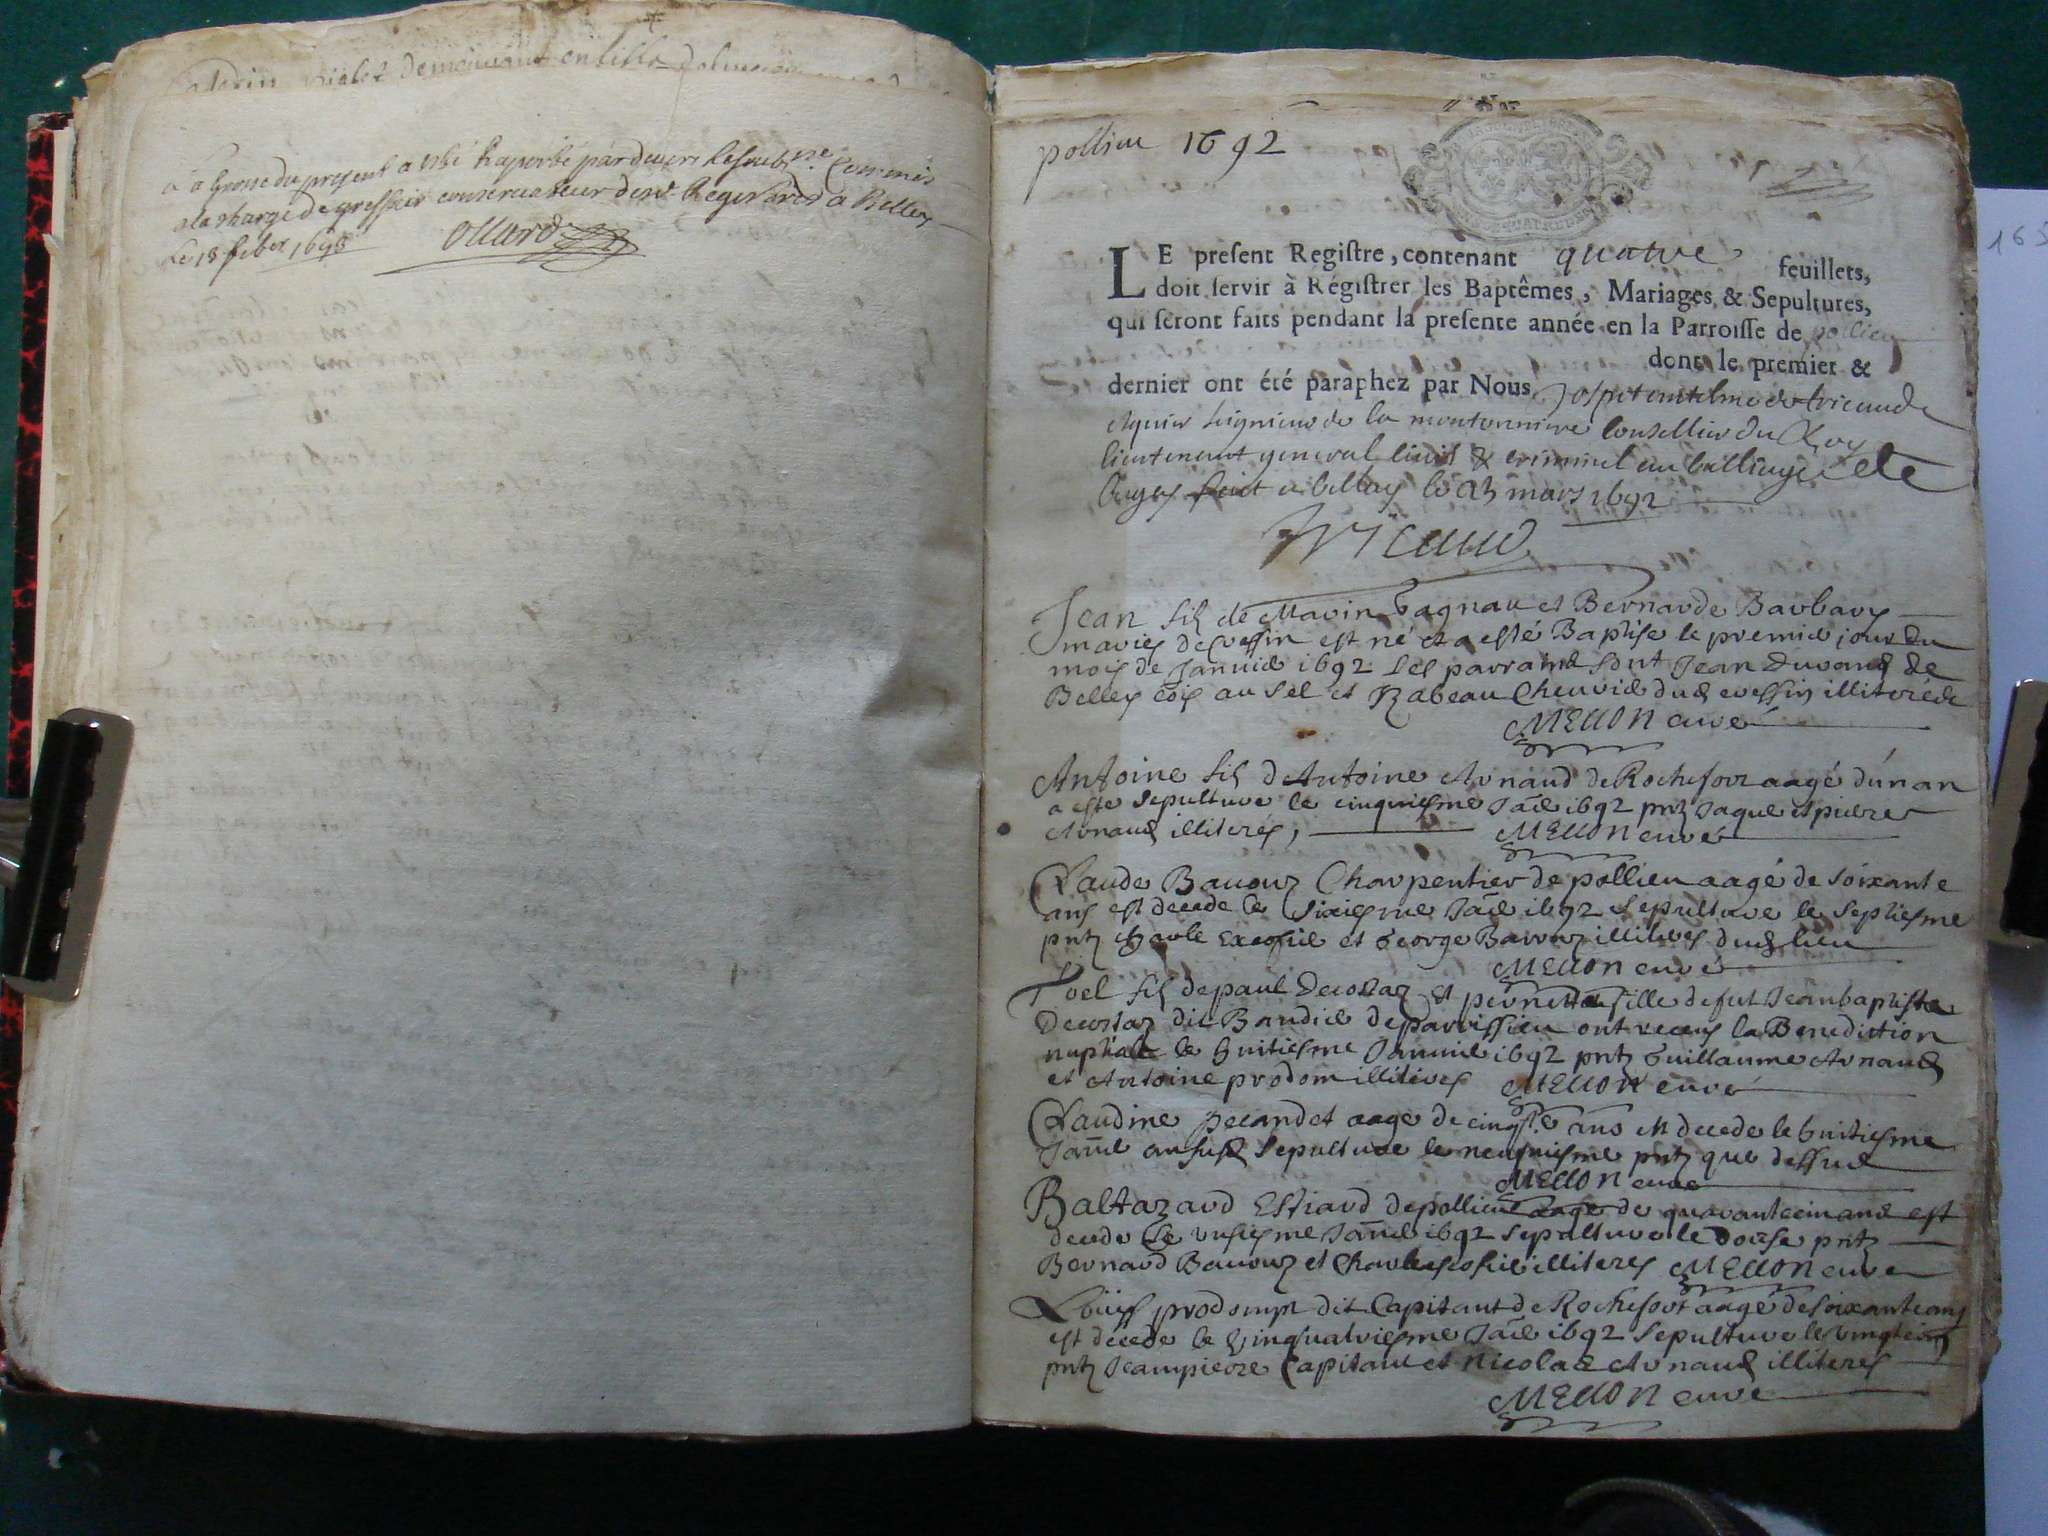 demeurant en
La Grosse du present a esté raportée pardevers le soub.ne Commis
a la charge de greffier conservateur desd. Registres a Belley
Le 18 feber 1693
Ollard
pollieu 1692
165
LE present Registre, contenant quatre feuillets,
doit servir à Régistrer les Baptêmes, Mariages & Sepultures,
qui seront faits pendant la presente année en la Parroisse de pollieu
dont le premier &
dernier ont été paraphez par Nous
seigneur de la moutonniere Conseillier du Roy
lieutenant general civil & criminel au balliage de
bugey fait a belley le mars 1692
Tricaud
Jean fils de Marin Gagnau et Bernarde Barbary
mariés de Cressin est né et a esté Baptise le premie jour du
mois de Janvie 1692 ses parrains sont Jean Durand de
Belley et Chenvie dud cressin illiteré
MEllON curé
Antoine fils d'Antoine Arnaud de Rochefort aagé d'un an
a este sepulture le cinquiesme Jāē 1692 pnts Jaque et pierre
Arnaud illiterés,
MEllON curé
Claude Bauouz Charpentier de pollieu aagé de soixante
ans est decede le sixiesme Jāē 1692 sepulture le septiesme
pnts Charle et George Bauouz illiterés dud lieu
MEllON curé
Noel fils de paul Decostaz et pernette fille de fut Jeanbaptiste
Decostaz dit Baudie de parvissieu ont receus la Benediction
nuptiale le huitiesme Januie 1692 pnts Guillaume Arnaud
et Antoine prodom illiterés MEllON curé
Claudine pecandet aage de ans est decede le huitiesme
Jānē sepulture le neufuiesme pnts que dessus
MEllON curé
Baltazard Estiard de pollieu aage de quarantecinans est
decede le unsiesme Jānē 1692 sepulture le douse pnts
Bernard Bauouz et Charle illiterés MEllON curé
Louis prodomp dit Capitant de Rochefort aagé de soixante ans
est decede le vingquatriesme Jāē 1692 sepulture le vingtcinq
pnts Jeanpierre Capitant et Nicolas Arnaud illiterés
MEllON curé